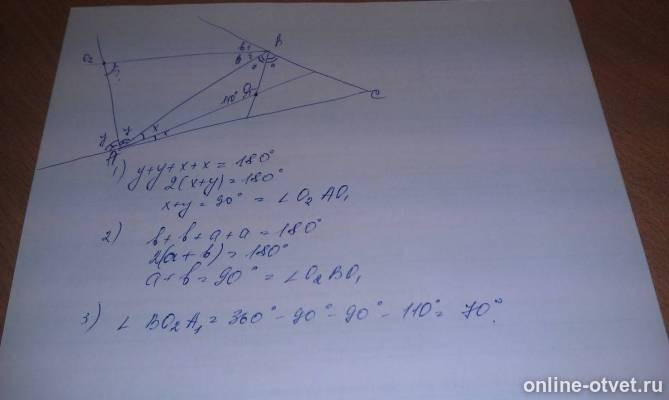 O₂
B
b
b
a
a
O₁
110°
C
y
y
x
x
A
1) y+y+x+x = 180°
2(x+y) = 180°
x+y = 90° = ∠O₂AO₁
2) b+b+a+a = 180°
2(a+b) = 180°
a+b = 90° = ∠O₂BO₁
3) ∠BO₂A₁ = 360° - 90° - 90° - 110° = 70°.
online-otvet.ru